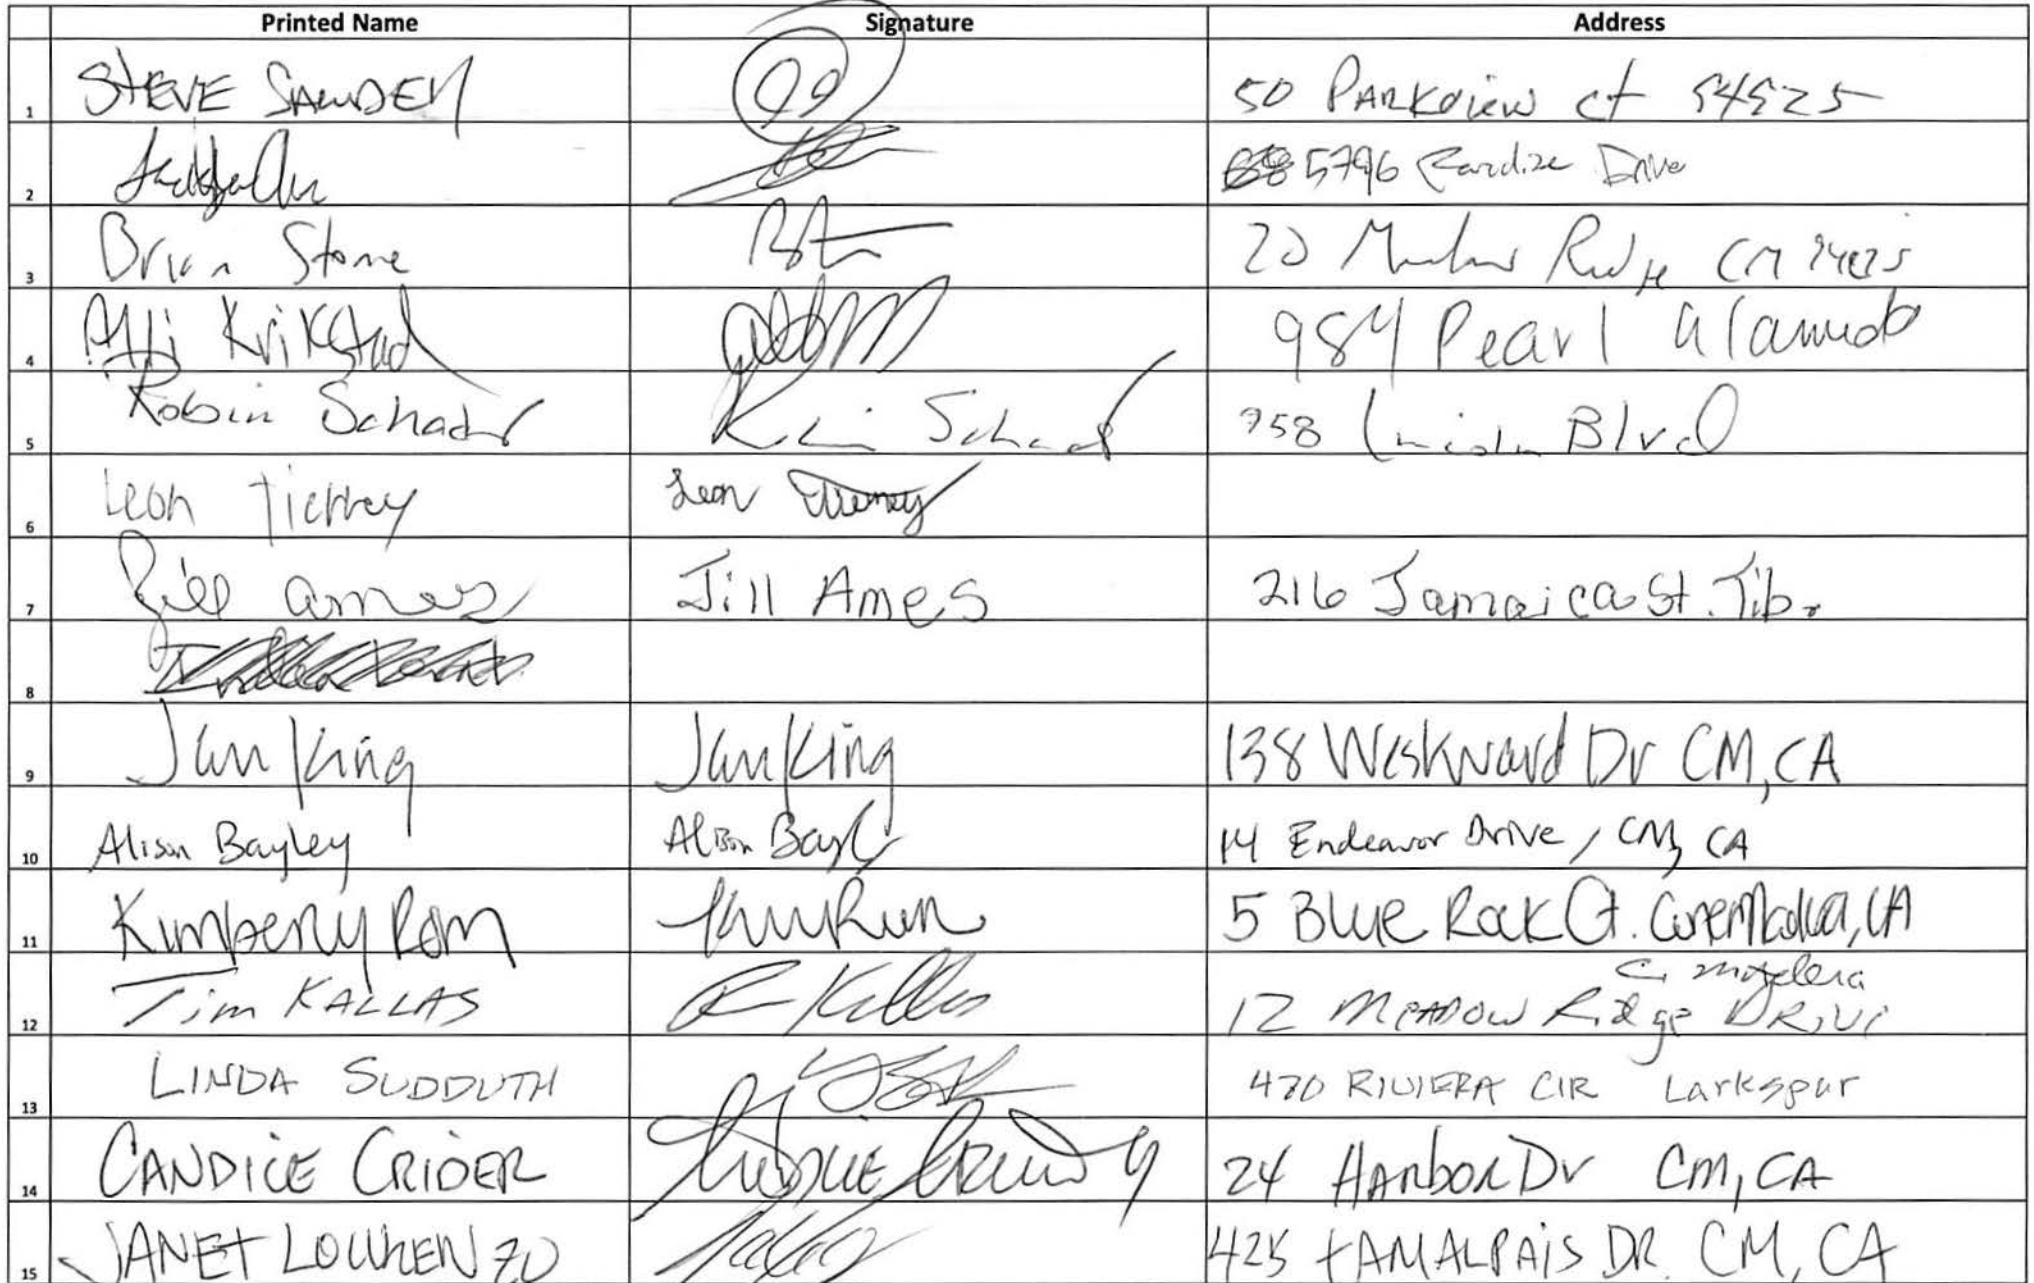 Printed Name Signature Address
1 STEVE 50 PARKview ct
2 5796 Drive
3 Brian Stone 20 CM
4 Krikstad 984 Pearl alameda
5 Robin Schader 758 Lincoln Blvd
6 Leon Tierney Leon Tierney
7 Jill ames Jill Ames 216 Jamaica St. Tib.
8
9 Jan King Jan King 138 Westward Dr CM, CA
10 Alison Bayley Alison 14 Endeavor Drive, CM, CA
11 Kimberly 5 Blue Rock Ct. Corte Madera, CA
C. madera
12 Tim KALLAS Kallas 12 MEADOW Ridge DRIVE
13 LINDA SUDDUTH 470 RIVIERA CIR Larkspur
14 CANDICE CRIDER 24 HArboR Dr CM, CA
15 JANET 425 tAMALPAiS DR. CM, CA